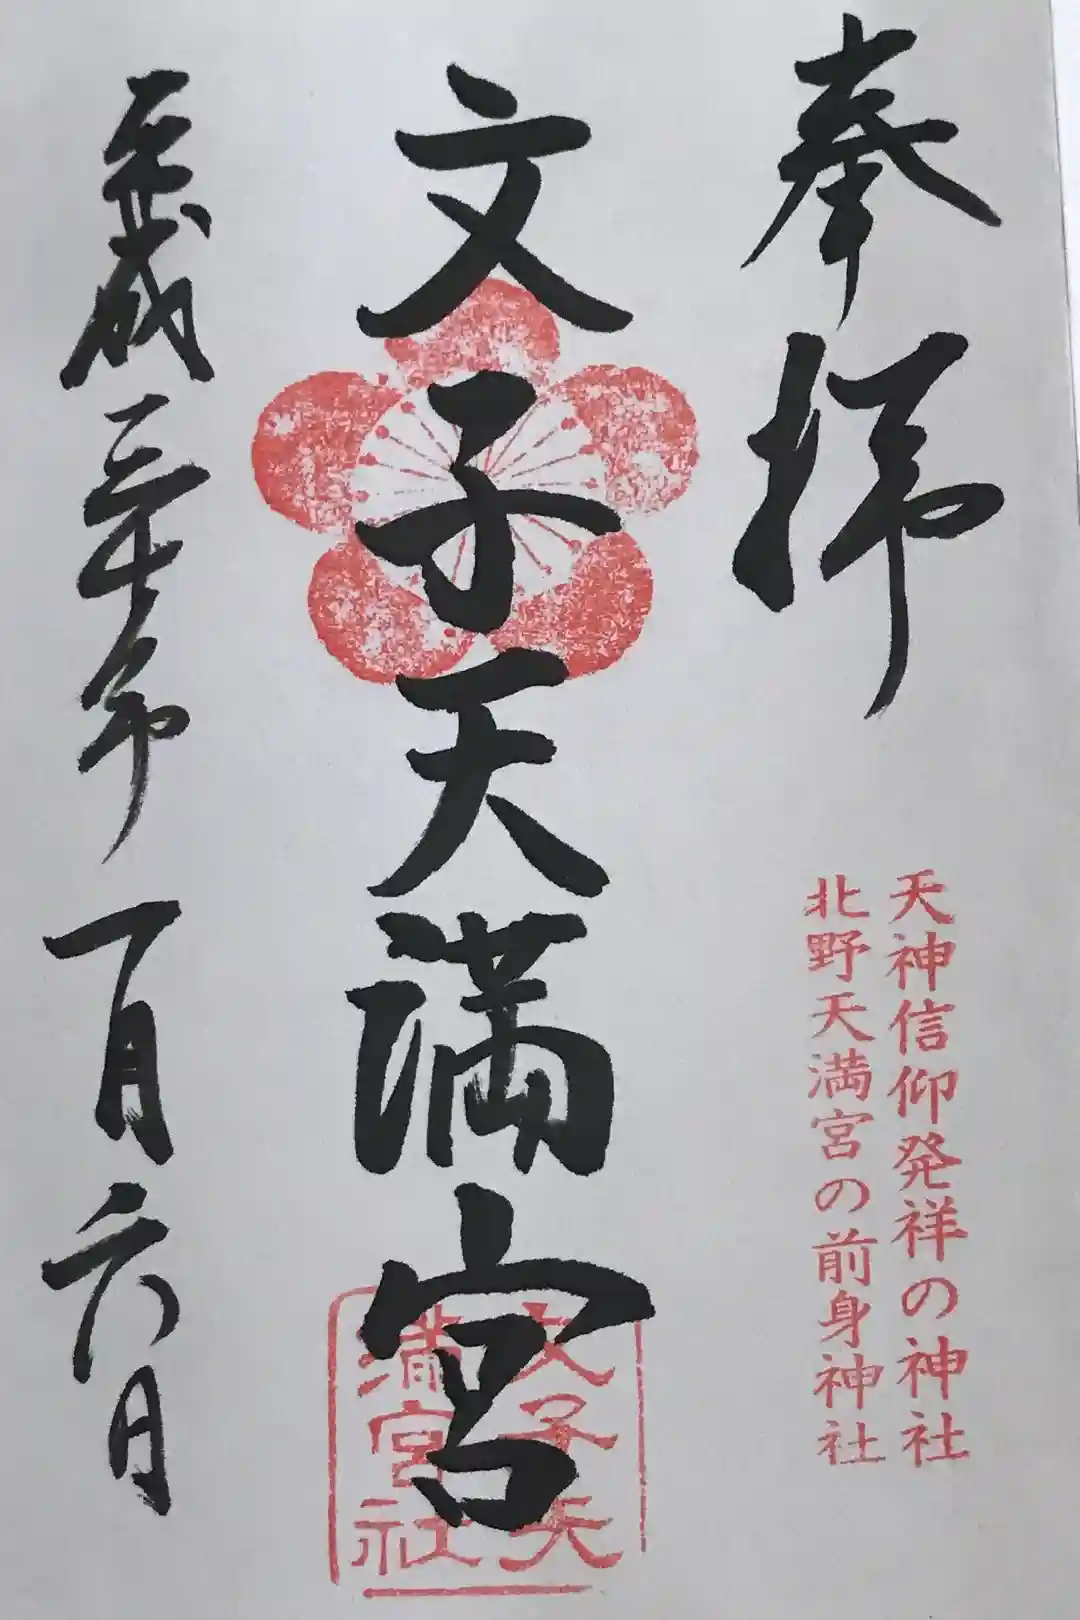 奉拝
天神信仰発祥の神社
北野天満宮の前身神社
文子天満宮
文子天
満宮社
平成三十年
一月六日